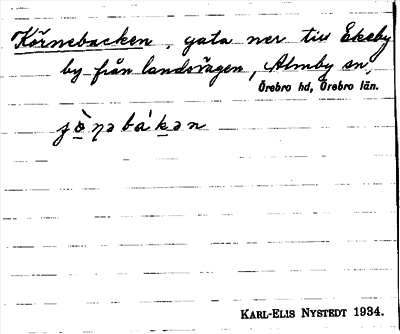 Körnebacken, gata ner till Ekeby
by från landsvägen, Almby sn,
Örebro hd, Örebro län.
KARL-ELIS NYSTEDT 1934.